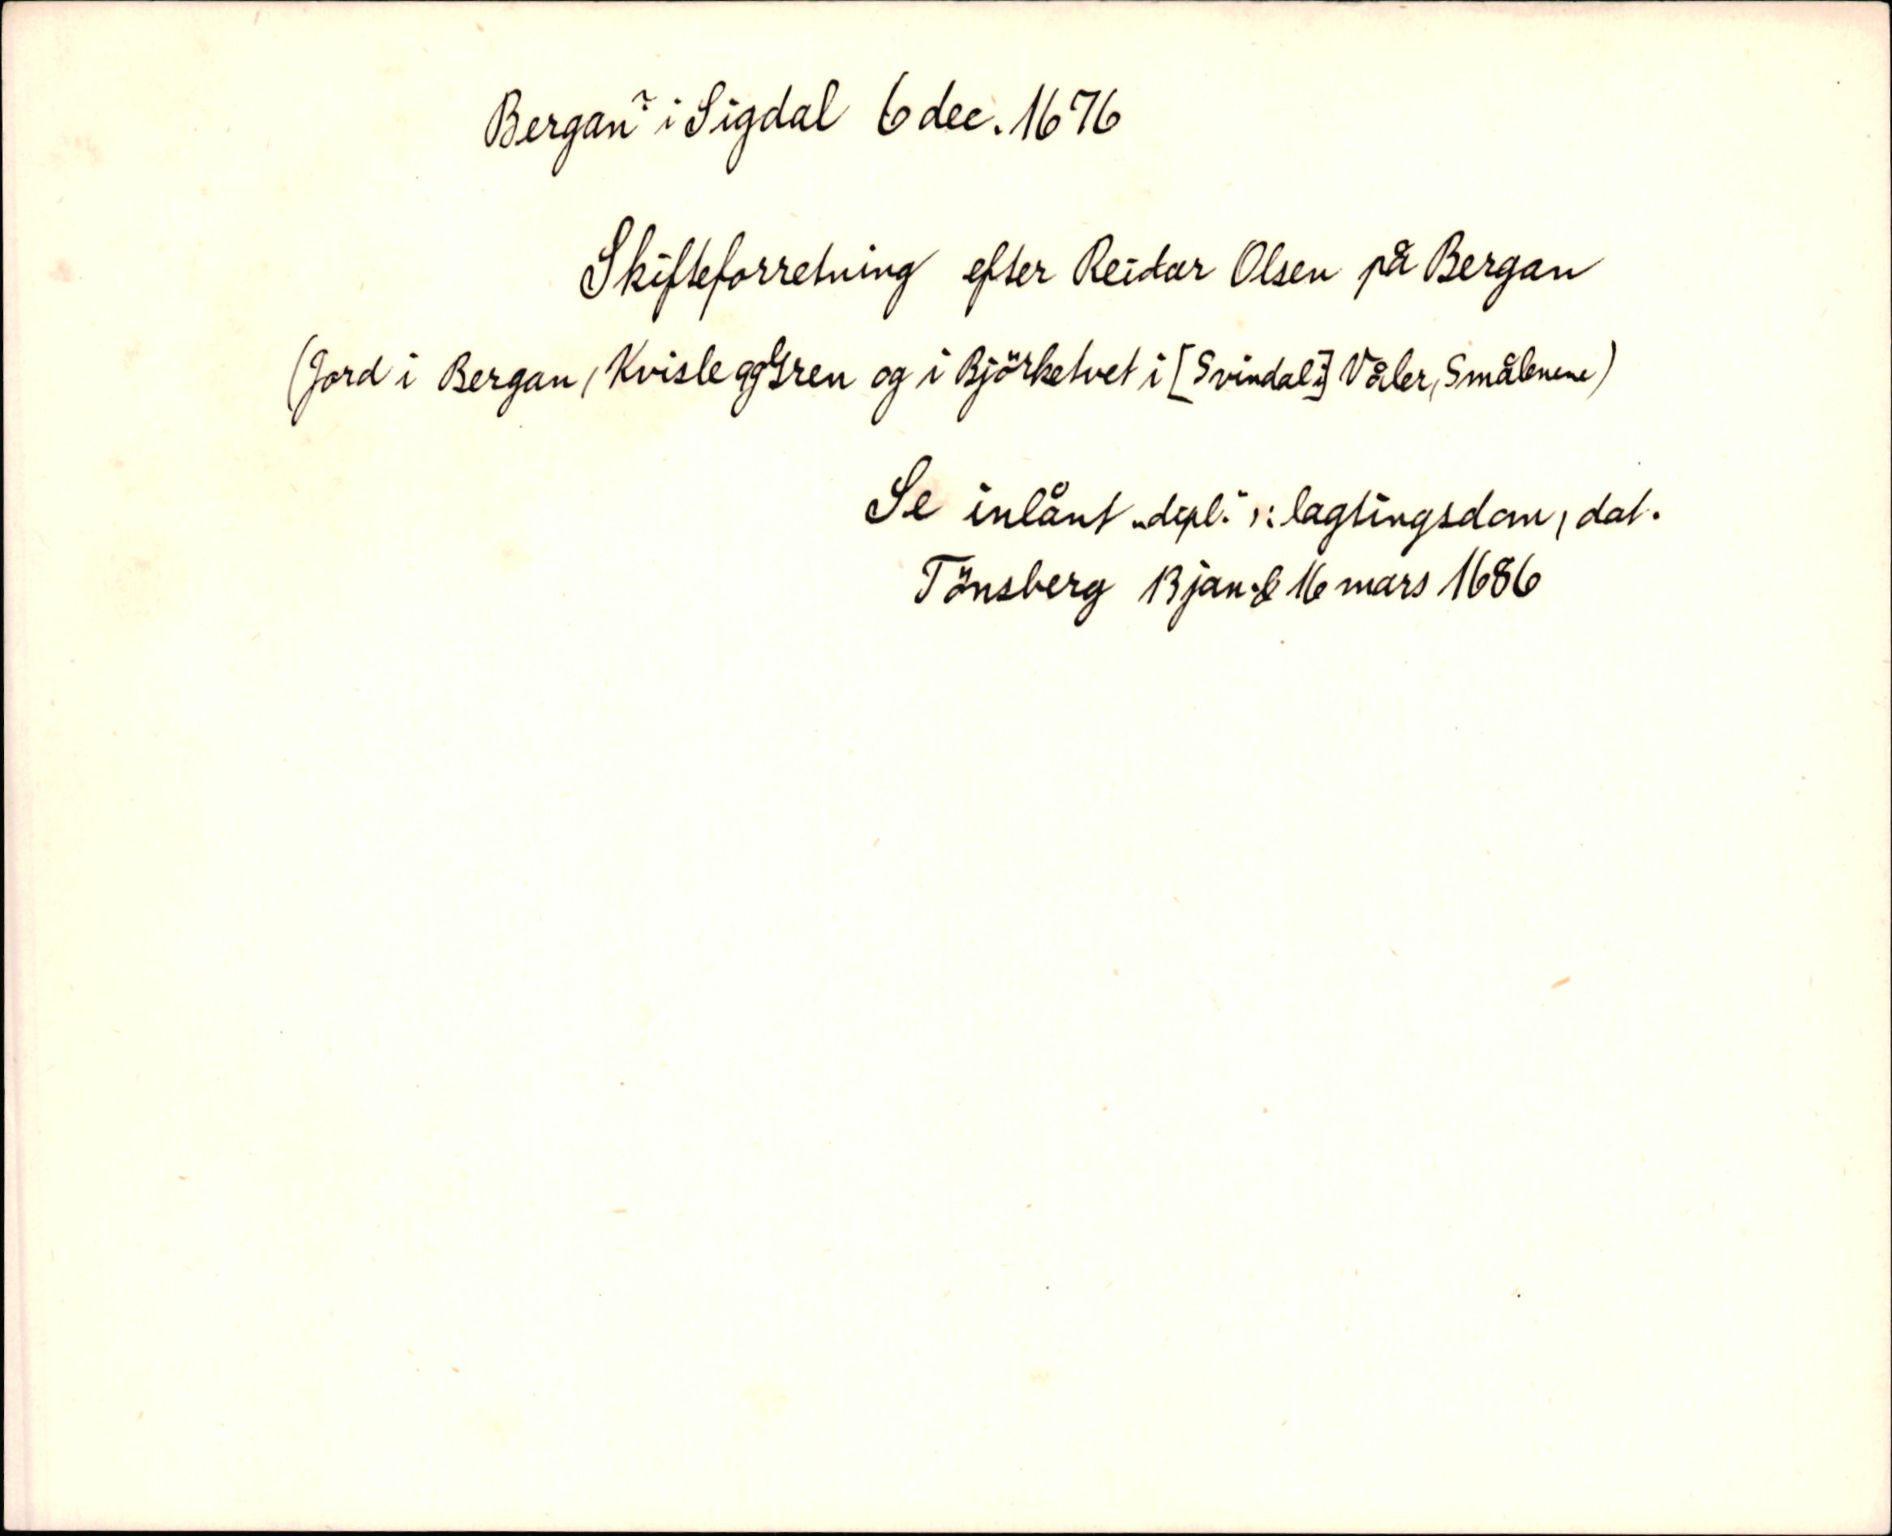 Bergan? i Sigdal 6 dec. 1676
Skifteforretning efter Reidar Olsen på Bergan
(Jord i Bergan, Kvisle og i Björketvet i [Svindal i] Våler, Smålenene)
Se inlånt „dipl.“ ɔ: lagtingsdom, dat.
Tönsberg 13 jan. & 16 mars 1686